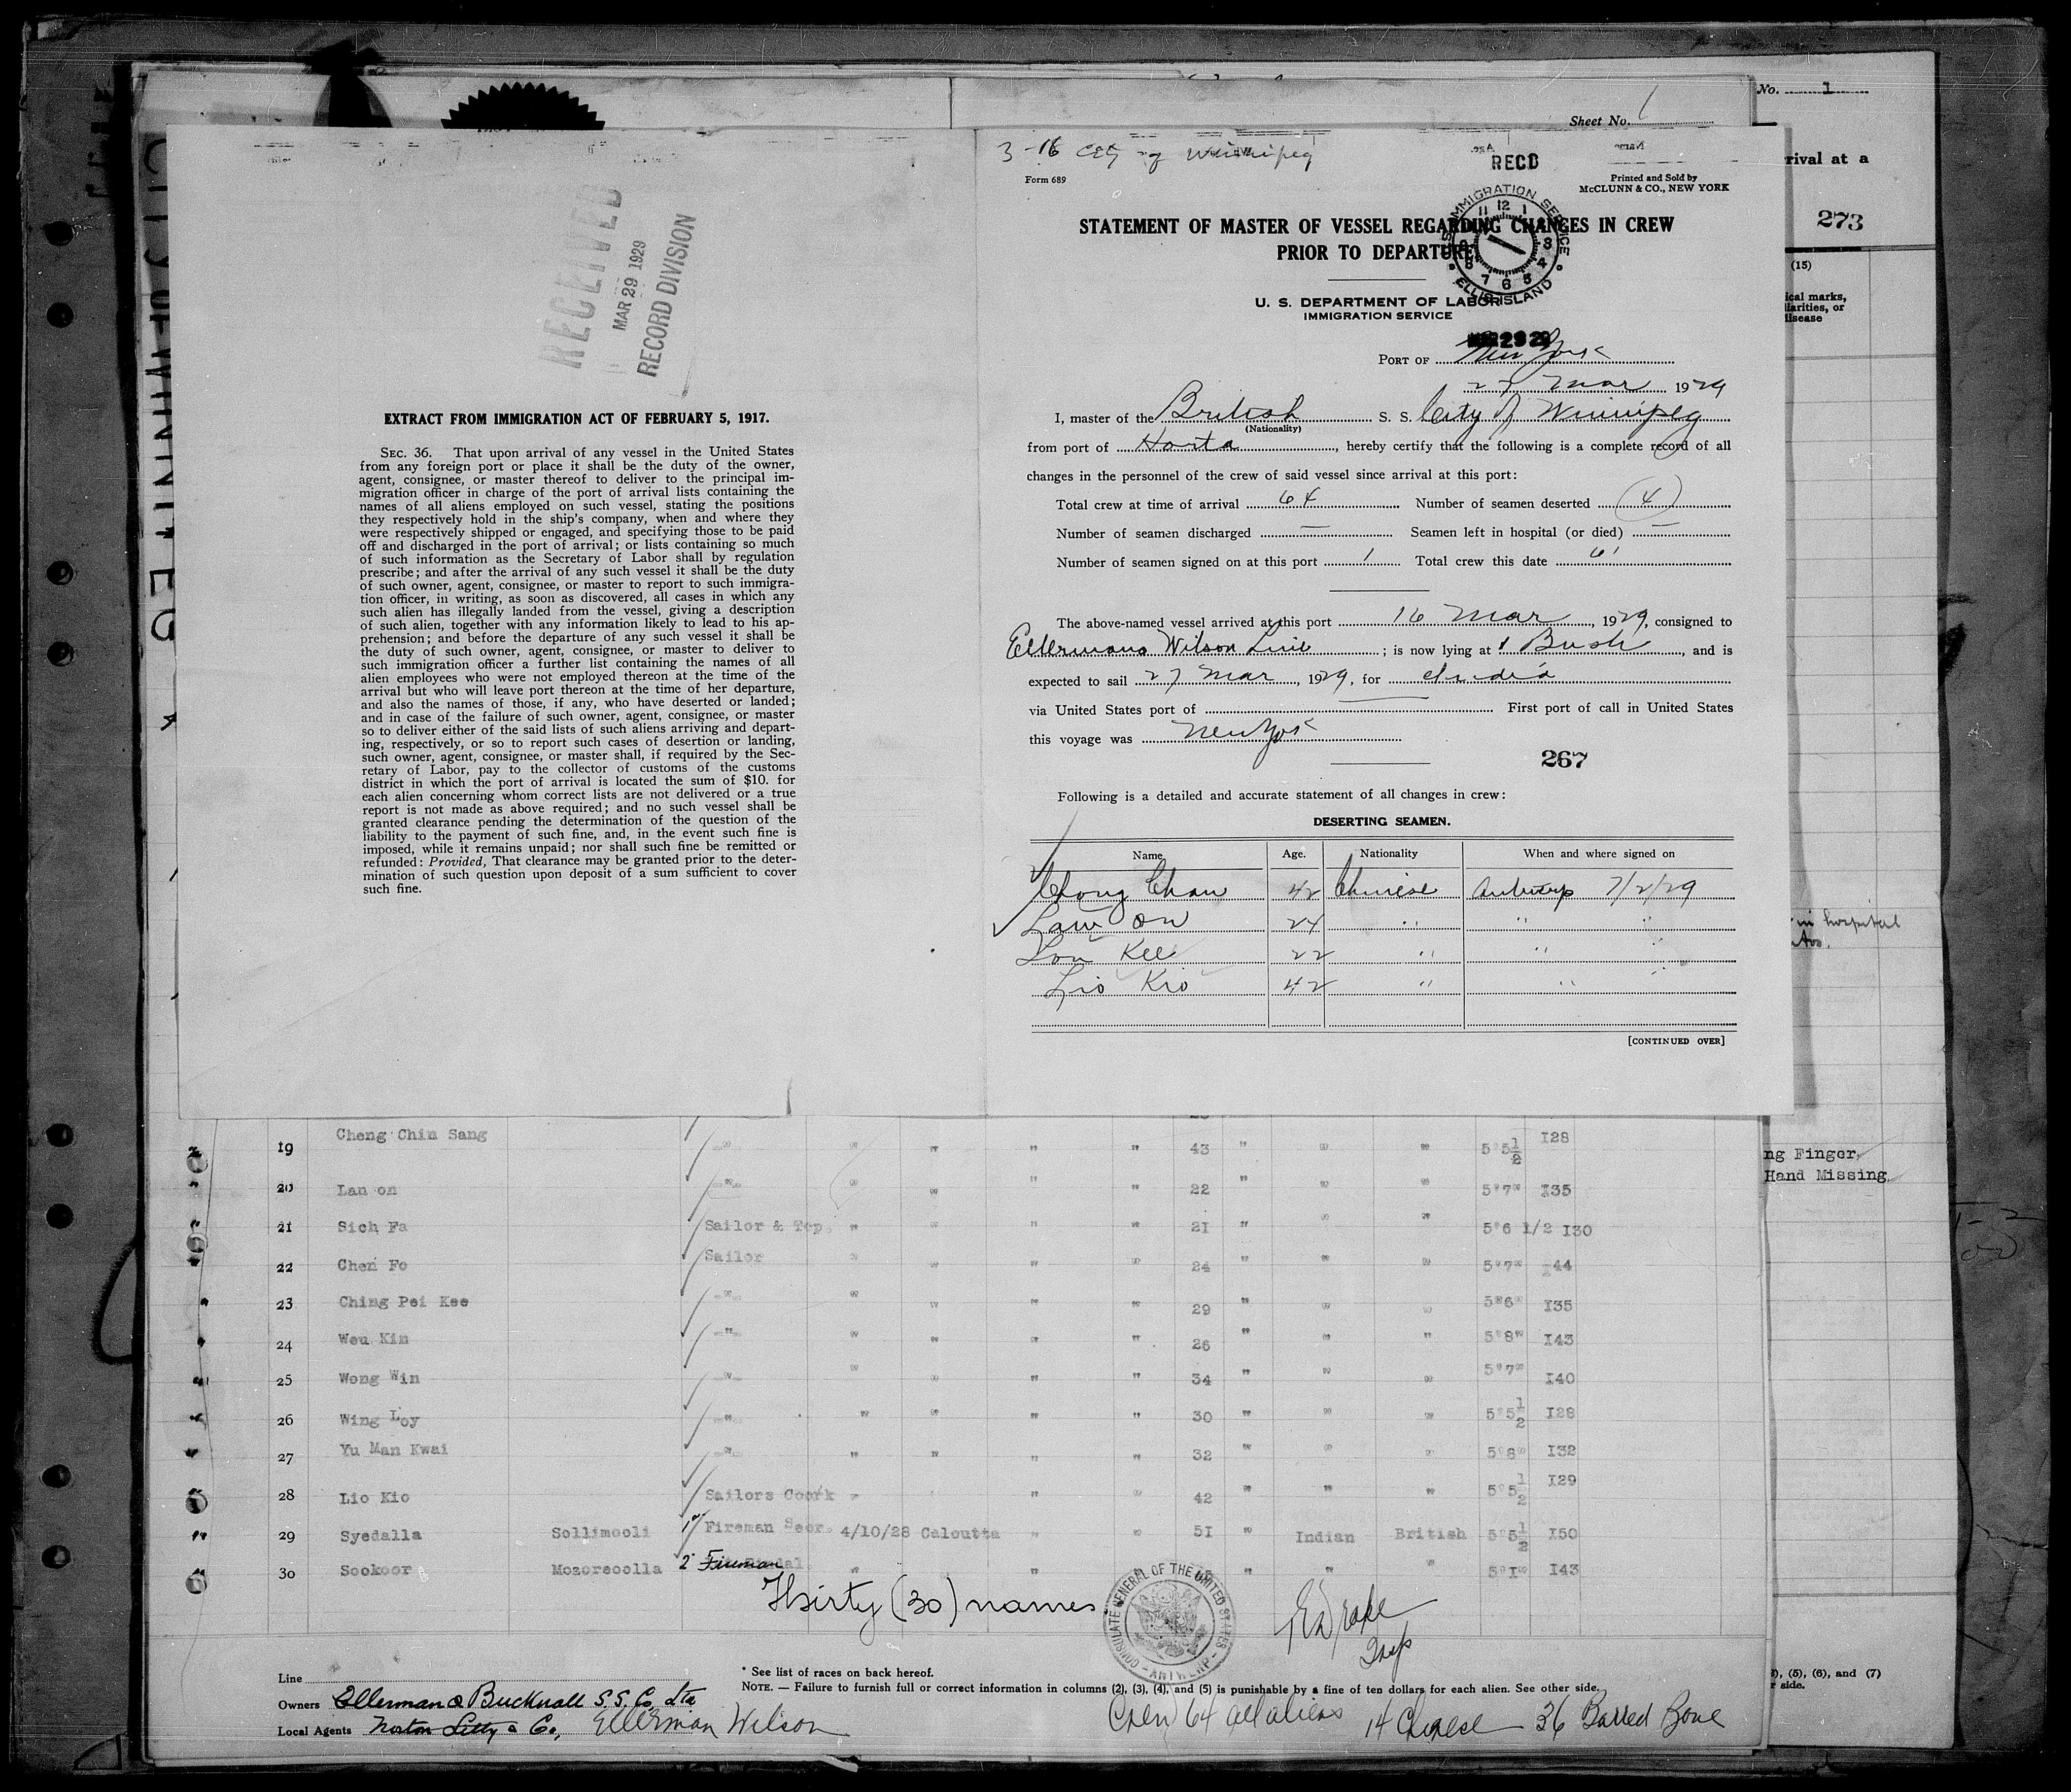 No. 1
Sheet No. 1
rival at a
273
(15)
ical marks,
liarities, or
disease
CITY OF WINNIPEG
RECEIVED
MAR 29 1929
RECORD DIVISION
EXTRACT FROM IMMIGRATION ACT OF FEBRUARY 5, 1917.
SEC. 36. That upon arrival of any vessel in the United States
from any foreign port or place it shall be the duty of the owner,
agent, consignee, or master thereof to deliver to the principal im-
migration officer in charge of the port of arrival lists containing the
names of all aliens employed on such vessel, stating the positions
they respectively hold in the ship's company, when and where they
were respectively shipped or engaged, and specifying those to be paid
off and discharged in the port of arrival; or lists containing so much
of such information as the Secretary of Labor shall by regulation
prescribe; and after the arrival of any such vessel it shall be the duty
of such owner, agent, consignee, or master to report to such immigra-
tion officer, in writing, as soon as discovered, all cases in which any
such alien has illegally landed from the vessel, giving a description
of such alien, together with any information likely to lead to his ap-
prehension; and before the departure of any such vessel it shall be
the duty of such owner, agent, consignee, or master to deliver to
such immigration officer a further list containing the names of all
alien employees who were not employed thereon at the time of the
arrival but who will leave port thereon at the time of her departure,
and also the names of those, if any, who have deserted or landed;
and in case of the failure of such owner, agent, consignee, or master
so to deliver either of the said lists of such aliens arriving and depart-
ing, respectively, or so to report such cases of desertion or landing,
such owner, agent, consignee, or master shall, if required by the Sec-
retary of Labor, pay to the collector of customs of the customs
district in which the port of arrival is located the sum of $10. for
each alien concerning whom correct lists are not delivered or a true
report is not made as above required; and no such vessel shall be
granted clearance pending the determination of the question of the
liability to the payment of such fine, and, in the event such fine is
imposed, while it remains unpaid; nor shall such fine be remitted or
refunded: Provided, That clearance may be granted prior to the deter-
mination of such question upon deposit of a sum sufficient to cover
such fine.
3-16 City of Winnipeg
RECD
Form 689
Printed and Sold by
McCLUNN & CO., NEW YORK
STATEMENT OF MASTER OF VESSEL REGARDING CHANGES IN CREW
PRIOR TO DEPARTURE
IMMIGRATION SERVICE
ELLIS ISLAND
U. S. DEPARTMENT OF LABOR
IMMIGRATION SERVICE
MAR 29 29
PORT OF New York
27 Mar 1929
I, master of the British S. S. City of Winnipeg
(Nationality)
from port of Horta, hereby certify that the following is a complete record of all
changes in the personnel of the crew of said vessel since arrival at this port:
Total crew at time of arrival 64 Number of seamen deserted (4)
Number of seamen discharged — Seamen left in hospital (or died) —
Number of seamen signed on at this port 1 Total crew this date 61
The above-named vessel arrived at this port 16 Mar, 1929, consigned to
Ellermans Wilson Line; is now lying at Bush, and is
expected to sail 27 Mar, 1929, for India
via United States port of — First port of call in United States
this voyage was New York
267
Following is a detailed and accurate statement of all changes in crew:
DESERTING SEAMEN.
Name Age. Nationality When and where signed on
Chong Chan 42 Chinese Antwerp 7/2/29
Law On 24 " " "
Lou Kee 22 " " "
Lio Kio 42 " " "
[CONTINUED OVER]
in hospital
19 Cheng Chin Sang " " " " " 43 " " " 5'5 1/2 I28
20 Lan on " " " " " 22 " " " 5'7" I35
21 Sich Fa Sailor & Top. " " " " 21 " " " 5'6 1/2 I30
22 Chen Fo Sailor " " " " 24 " " " 5'7" I44
23 Ching Pei Kee " " " " " 29 " " " 5'6" I35
24 Wou Kin " " " " " 26 " " " 5'8" I43
25 Wong Win " " " " " 34 " " " 5'7" I40
26 Wing Loy " " " " " 30 " " " 5'5 1/2 I28
27 Yu Man Kwai " " " " " 32 " " " 5'8" I32
28 Lio Kio Sailors Coork " " " " 42 " " " 5'5 1/2 I29
29 Syedalla Sollimooli 1st Fireman Seor. 4/10/28 Calcutta " " 51 " Indian British 5'5 1/2 I50
30 Sookoor Mozoreoolla 2" Fireman " " " " " " " 5'1" I43
ng Finger,
Hand Missing
Thirty (30) names
CONSULATE GENERAL OF THE UNITED STATES
- ANTWERP -
E Drake
Insp
Line
* See list of races on back hereof.
NOTE. — Failure to furnish full or correct information in columns (2), (3), (4), and (5) is punishable by a fine of ten dollars for each alien. See other side.
Owners Ellerman & Bucknall S.S. Co. Ltd
Local Agents Norton Lilly & Co, Ellerman Wilson
Crew 64 all aliens 14 Chinese 36 Barred Zone
, (5), (6), and (7)
r side.